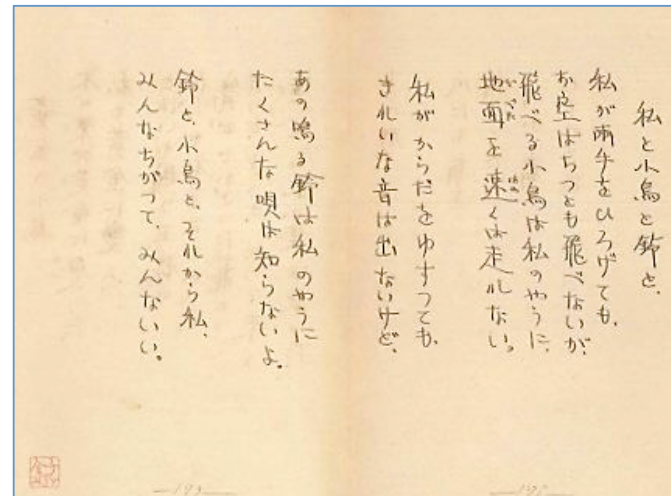 私と小鳥と鈴と、
私が両手をひろげても、
お空はちつとも飛べないが、
飛べる小鳥は私のやうに、
地面を速くは走れない。
私がからだをゆすつても、
きれいな音は出ないけど、
あの鳴る鈴は私のやうに
たくさんな唄は知らないよ。
鈴と、小鳥と、それから私、
みんなちがつて、みんないい。
—193—